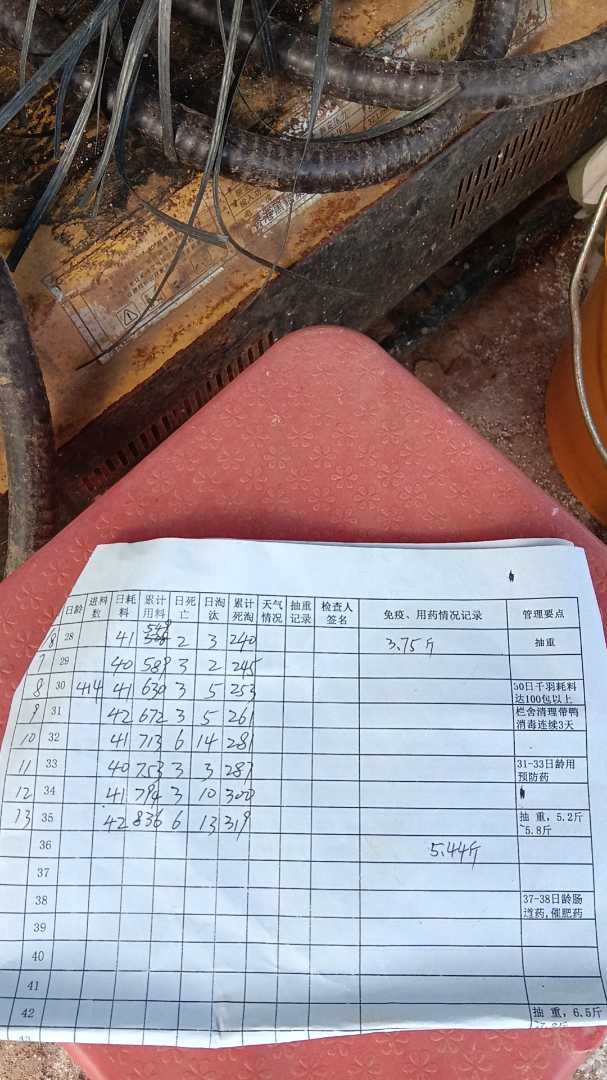 日龄 进料数 日耗料 累计用料 日死亡 日淘汰 累计死淘 天气情况 抽重记录 检查人签名 免疫、用药情况记录 管理要点
28 41 549 2 3 240 3.75斤 抽重
7 29 40 589 3 2 245
8 30 414 41 630 3 5 253 30日千羽耗料达100包以上
9 31 42 672 3 5 261 栏舍清理带鸭消毒连续3天
10 32 41 713 6 14 281
11 33 40 753 3 3 287 31-33日龄用预防药
12 34 41 794 3 10 300
13 35 42 836 6 13 319 抽重，5.2斤~5.8斤
36 5.44斤
37
38 37-38日龄肠道药,催肥药
39
40
41
42 抽重，6.5斤